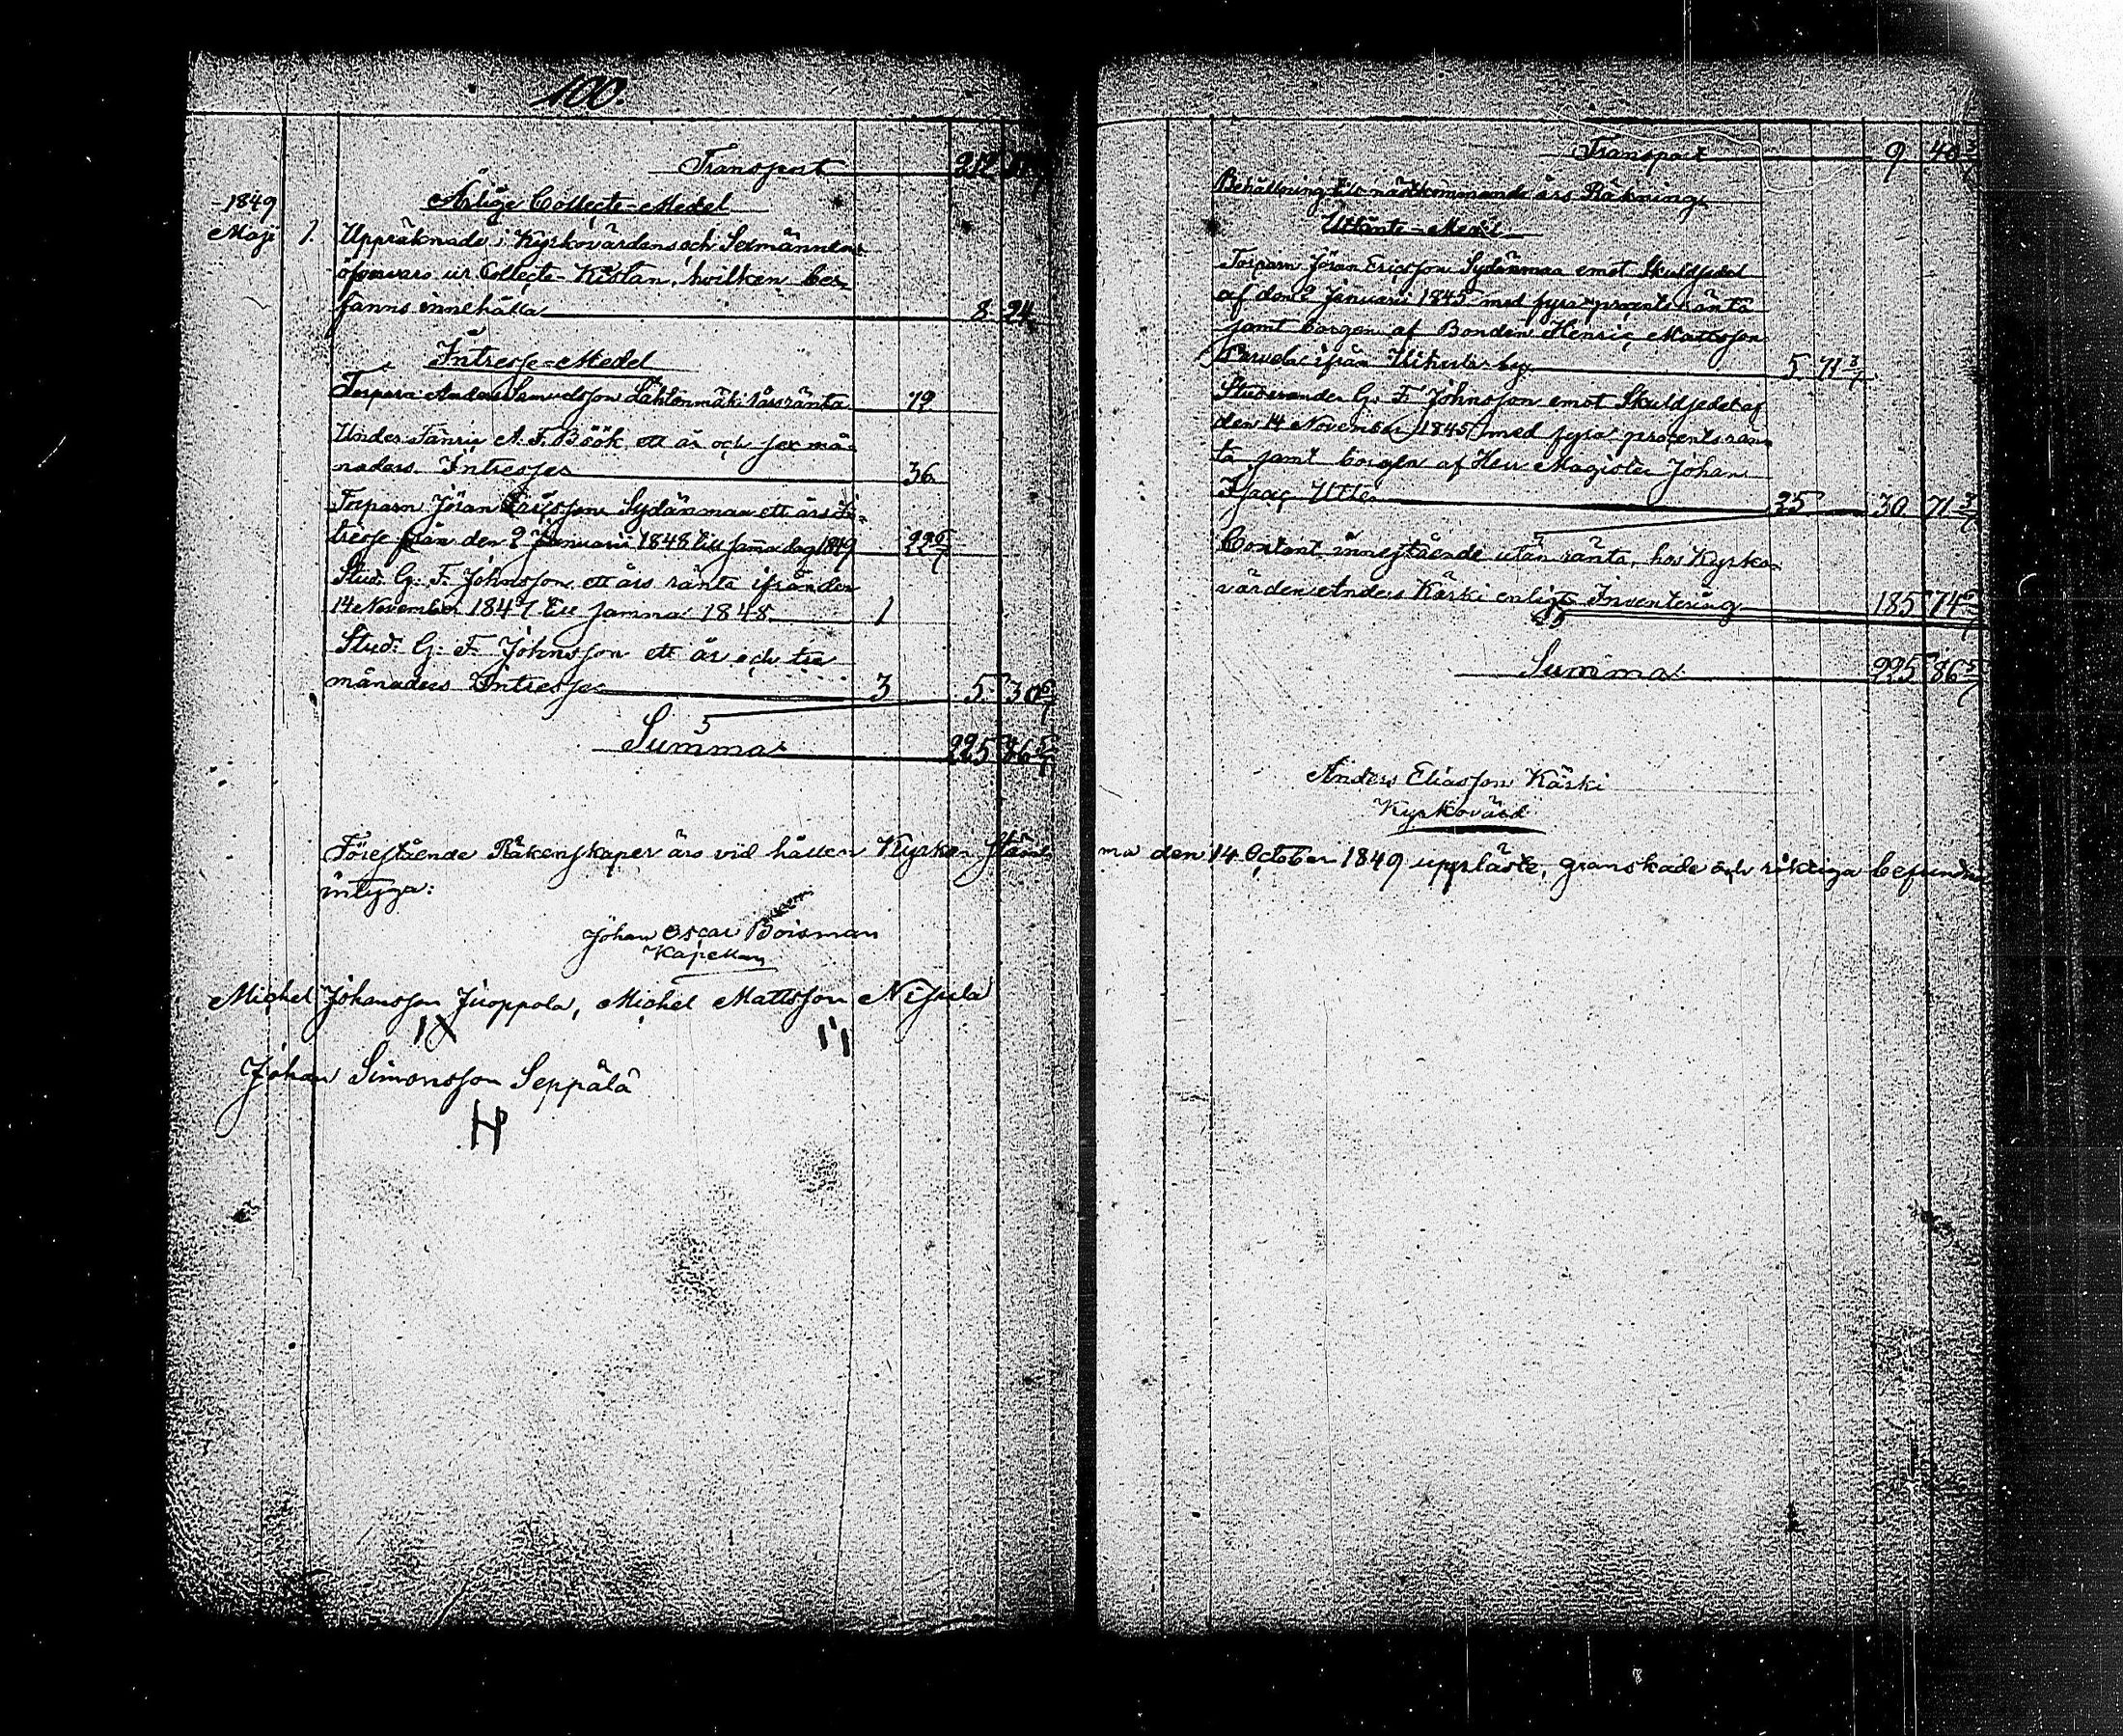 100.
Transport 212
Årlige Collecte-Medel
1849
Maji 1. Uppräknade i Kyrkovärdens och Sexmännens
öfvervaro ur Collecte-Kistan, hvilken be-
fanns innehålla 8 24
Intresse-Medel
Torparn Anders Samuelsson Lahtenmäki 1 års ränta 12
Under-Fänric A. F.Böök ett år och sex må-
naders Intresse 36
Torparn Jöran Ericsson Sydänmaa ett års In-
tresse från den 2 Januarii 1848 till samma dag 1849 22 6/7
Stud. G. F. Johnsson ett års ränta ifrån den
14 November 1847 till samma 1848 1
Stud. G. F. Johnsson ett år och tre
månaders Intresse 3 5 30 6/7
Summa 225 86 5/7
Föreståënde Räkenskaper äro vid hållen Kyrkostäm-
intyga:
Johan Oscar Boisman
Kapellan
Michel Johansson Juoppola, Michel Mattsson Nisula
Johan Simonsson Seppälä
Transport 9 40
Behållning till nästkommande års Räkning
Utlånte-Medel
Torparn Jöran Ericsson Sydänmaa emot Skuldsedel
af den 2 Januarii 1845 med fyra procents ränta
samt borgen af Bonden Henric Mattsson
ifrån by 5 71 3/7
Studeranden G. F. Johnsson emot Skuldsedel af
den 14 November 1845 med fyra procents rän-
ta samt borgen af Herr Magister Johan
Isaac Utter 25 30 71 3/7
Contant innestående utan ränta, hos Kyrko-
värden Anders Käski enligt Inventering 185 74 6/7
Summa 225 86 5/7
Anders Eliasson Käski
Kyrkovärd
ma den 14 October 1849 uppläste, granskade och riktiga befundne